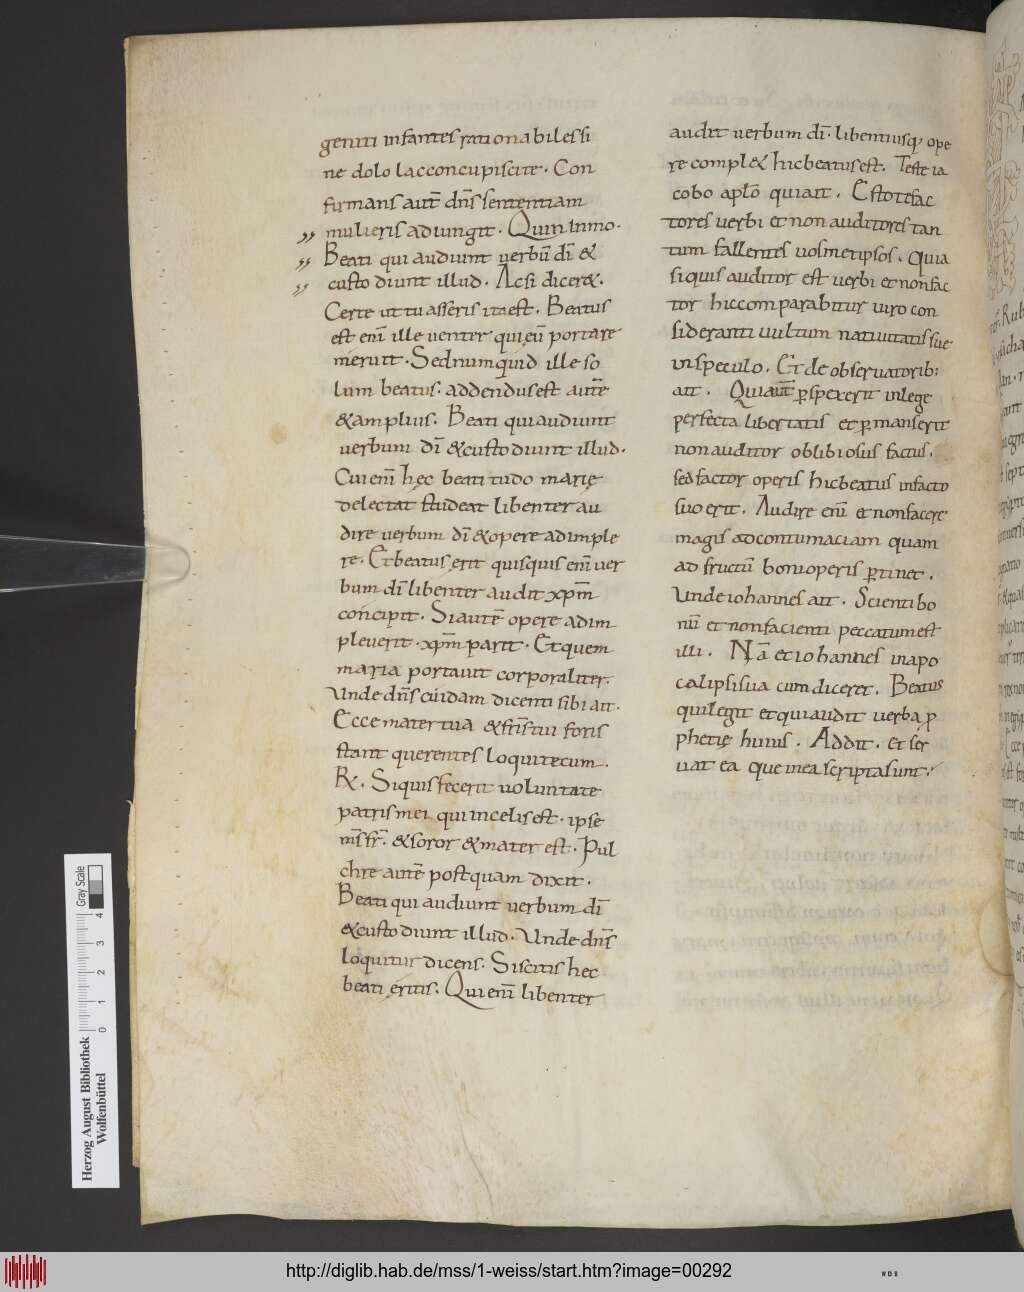 geniti infantes rationabiles si
ne dolo lac concupiscite. Con
firmans aut̄ dn̄s sententiam
mulieris adiungit. Quin Inmo.
Beati qui audiunt verbū dī &
custodiunt illud. Acsi dicer&.
Certe ut tu asseris ita est. Beatus
est enī ille venter qui eū portare
meruit. Sed numquid ille so
lum beatus. addendus est autē
& amplius. Beati qui audiunt
verbum dī & custodiunt illud.
Cui enī hęc beatitudo marię
delectat studeat libenter au
dire verbum dī & opere adimple
re. Et beatus erit quisquis enī ver
bum dī libenter audit xp̄m
concipit. Si autē opere adim
pleverit. xp̄m parit. Et quem
maria portavit corporaliter.
Unde dn̄s cuidam dicenti sibi ait.
Ecce mater tua & fr̄s tui foris
stant querentes loqui tecum.
R̄. Siquis fecerit voluntate
patris mei qui in celis est. ipse
m̄s fr̄. & soror & mater est. Pul
chre autē postquam dixit.
Beati qui audiunt verbum dī
& custodiunt illud. Unde dn̄s
loquitur dicens. Si scitis hęc
beati eritis. Qui enī libenter
audit verbum dī. libentiusq; ope
re compl& hic beatus est. Teste ia
cobo apło qui ait. Estote fac
tores verbi et non auditores tan
tum fallentes vosmetipsos. Quia
siquis auditor est verbi et non fac
tor hic comparabitur viro con
sideranti vultum nativitatis sue
in speculo. Et de observatorib:
ait. Qui aut̄ ꝑspexerit in lege
perfecta libertatis et ꝑmanserit
non auditor obliviosus factus.
sed factor operis hic beatus in facto
suo erit. Audire enī et non facere
magis ad contumaciam quam
ad fructū boni operis ꝑtinet.
Unde iohannes ait. Scienti bo
nū et non facienti peccatum est
illi. Nā et iohannes in apo
calipsi sua cum diceret. Beatus
qui legit et qui audit verba ꝓ
phetię huius. Addit. et ser
vat ea que in ea scripta sunt.
Herzog August Bibliothek
Wolfenbüttel
0 1 2 3 4
Gray Scale
http://diglib.hab.de/mss/1-weiss/start.htm?image=00292